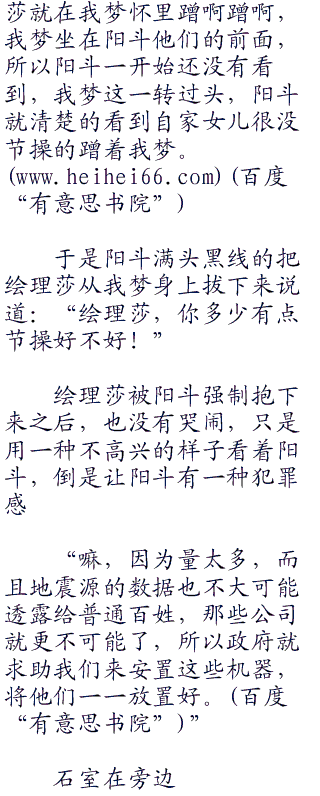 莎就在我梦怀里蹭啊蹭啊，
我梦坐在阳斗他们的前面，
所以阳斗一开始还没有看
到，我梦这一转过头，阳斗
就清楚的看到自家女儿很没
节操的蹭着我梦。
(www.heihei66.com)(百度
“有意思书院”)
于是阳斗满头黑线的把
绘理莎从我梦身上拔下来说
道：“绘理莎，你多少有点
节操好不好！”
绘理莎被阳斗强制抱下
来之后，也没有哭闹，只是
用一种不高兴的样子看着阳
斗，倒是让阳斗有一种犯罪
感
“嘛，因为量太多，而
且地震源的数据也不大可能
透露给普通百姓，那些公司
就更不可能了，所以政府就
求助我们来安置这些机器，
将他们一一放置好。(百度
“有意思书院”)”
石室在旁边